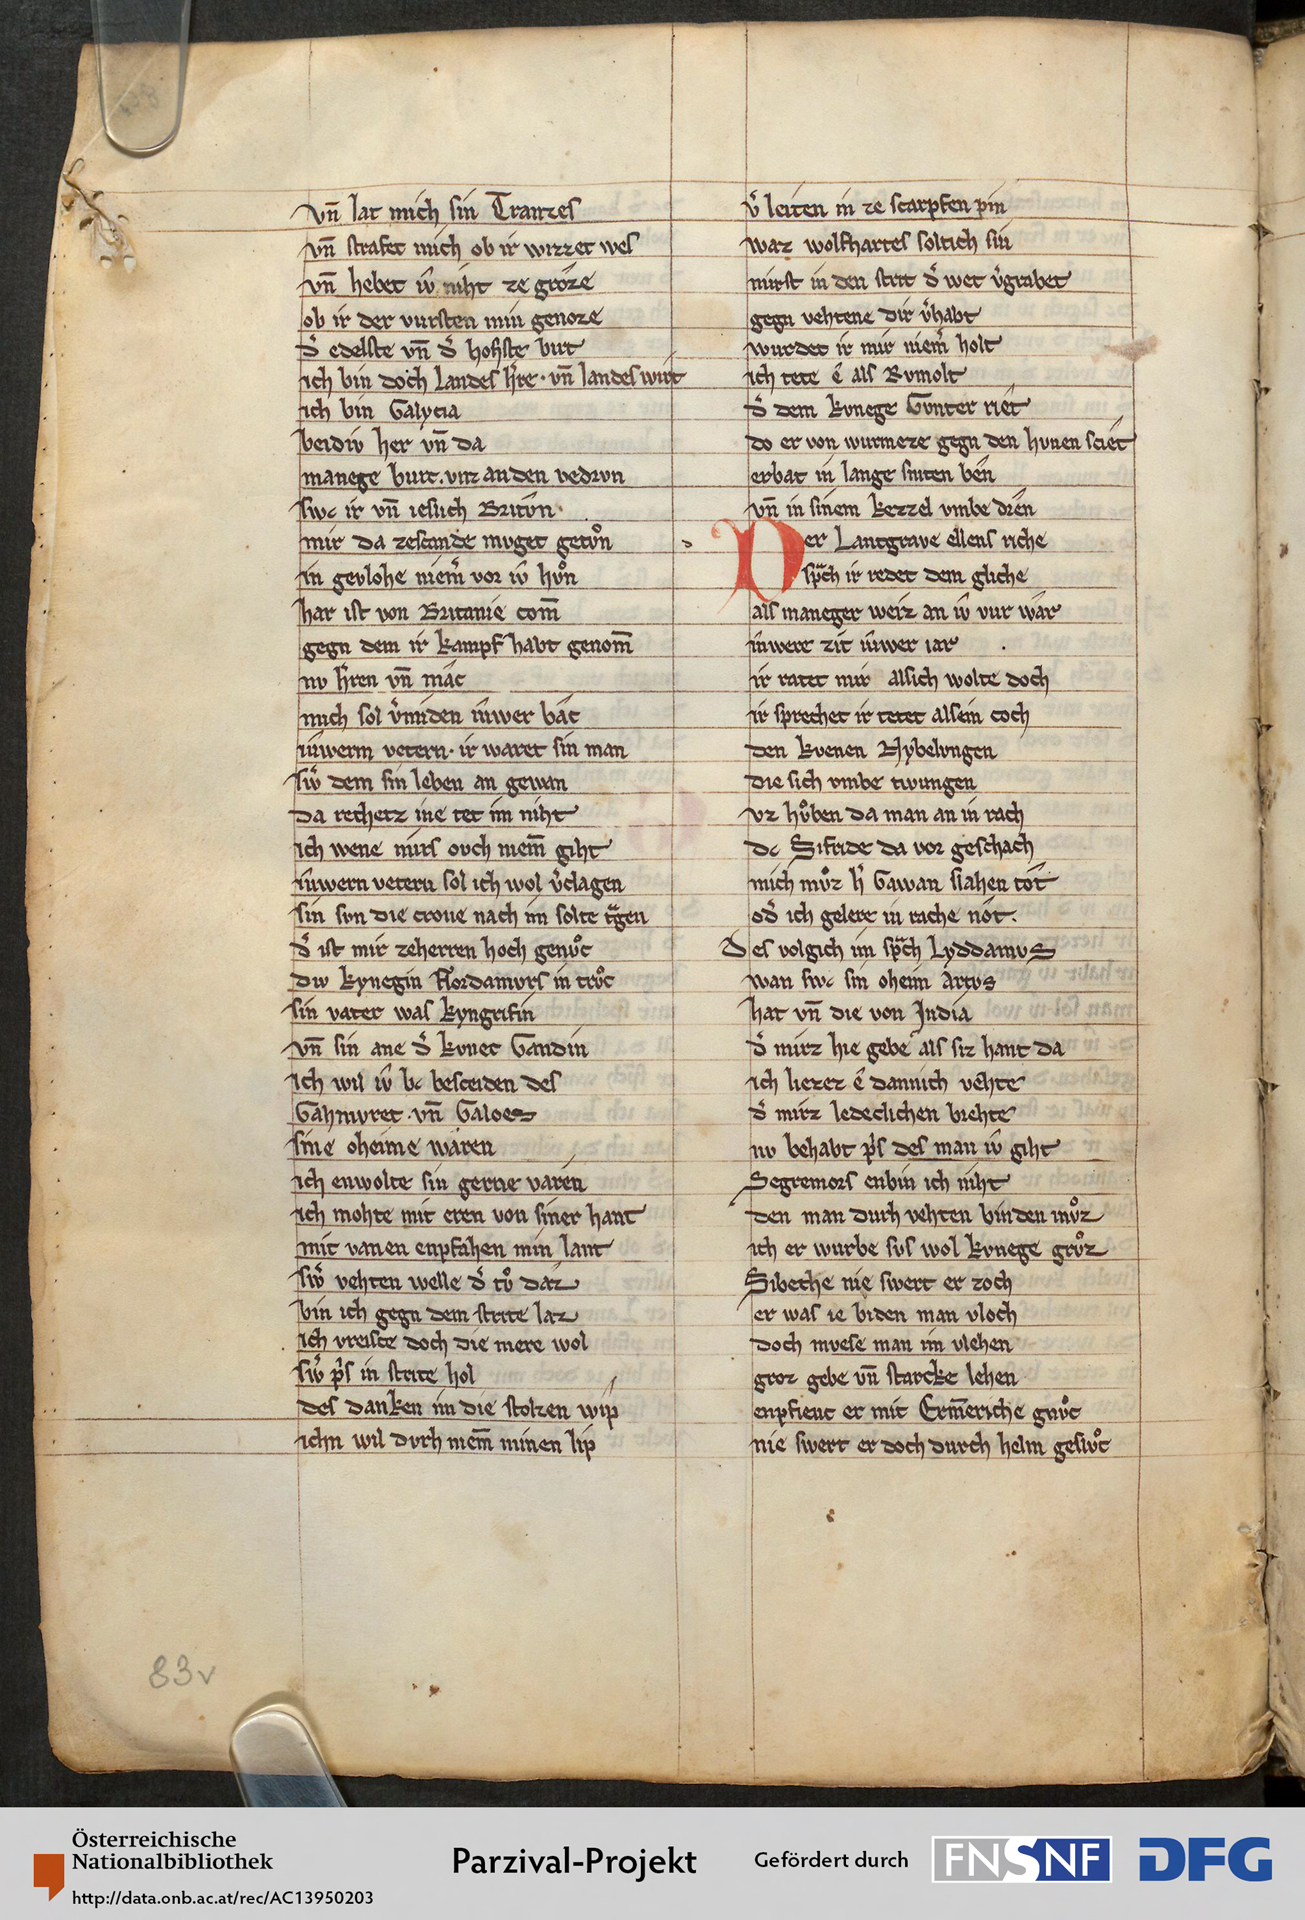 vn̄ lat mich sin Tranzes
vn̄ strafet mich ob ir wizzet wes
vn̄ hebet iv̂ niht ze groze
ob ir der vursten min genoze
d͛ edelste vn̄ d͛ hohste burt
ich bin doch landes h͛re · vn̄ landes wirt
ich bin Galycia
beidiv her vn̄ da
manege burt . vnz an den vedrvn
swc ir vn̄ ieslich Britv̂n ·
mir da zescande mvget getvͦn
in gevlohe niem͛ vor iv̂ hvͦn
har ist von Britanie com̄
gegn dem ir kampf habt genom̄
nv h͛ren vn̄ mac
mich sol v͛miden iv̂wer bac
iv̂werm vetern · ir waret sin man
sw͛ dem sin leben an gewan
da rechetz ine tet im niht
ich wene mirs ovch niem̄ giht
iv̂wern vetern sol ich wol v͛clagen
sin svn die crone nach im solte tᷓgen
d͛ ist mir zeherren hoch genvͦc
div kynegin Flordamvrs in trvͦc
sin vater was kyngrisin
vn̄ sin ane d͛ kvnec Gandin
ich wil iv̂ bc besceiden des
Gahmvret · vn̄ Galoes
sine oheime waren
ich enwolte sin gerne varen
ich mohte mit eren von siner hant
mit vanen enpfahen min lant
sw͛ vehten welle d͛ tvͦ daz
bin ich gegn dem strite laz
ich vreische doch die mere wol
sw͛ p͛s in strite hol
des danken im die stolzen wip
ichn wil dvrh niem̄ minen lip
v͛leiten in ze scarpfen pin
waz wolfhartes soltich sin
mirst in den strit d͛ wec v͛grabet
gegn vehtene dir v͛habt
wurdet ir mir niem͛ holt
ich tete ê als Rvmolt
d͛ dem kvnege Gvnter riet
do er von wurmeze gegn den hvnen sciet
er bat in lange sniten ben
vn̄ in sinem kezzel vmbe dren
Der Lantgrave ellens riche
spᷓch ir redet dem gliche
als maneger weiz an iv̂ vur war
iv̂were zit iv̂wer iar
ir ratet mir alsich wolte doch
ir sprechet ir tetet alsein coch
den kvenen Nybelvngen
die sich vmbe twungen
vz hvͦben da man an in rach
dc Sifride da vor geschach
mich mvͦz h͛ Gawan slahen tot
od͛ ich gelere in rache not .
des volgich im spᷓch Lyddamvs
wan swc sin oheim Artvs
hat vn̄ die von India
d͛ mirz hie gebe als siz hant da
ich liezez ê dannich vehte
d͛ mirz ledeclichen biehte
nv behabt p͛s des man iv̂ giht
Segremors enbin ich niht
den man durh vehten binden mvͦz
ich er wurbe svs wol kvnege grvͦz
Sibeche nie swert er zoch
er was ie biden man vloch
doch mvese man im vlehen
groz gebe vn̄ starcke lehen
enpfienc er mit Erm̄eriche gnvͦc
nie swert er doch durch helm geslvͦc
83v
Österreichische
Nationalbibliothek
http://data.onb.ac.at/rec/AC13950203
Parzival-Projekt
Gefördert durch
FNSNF
DFG